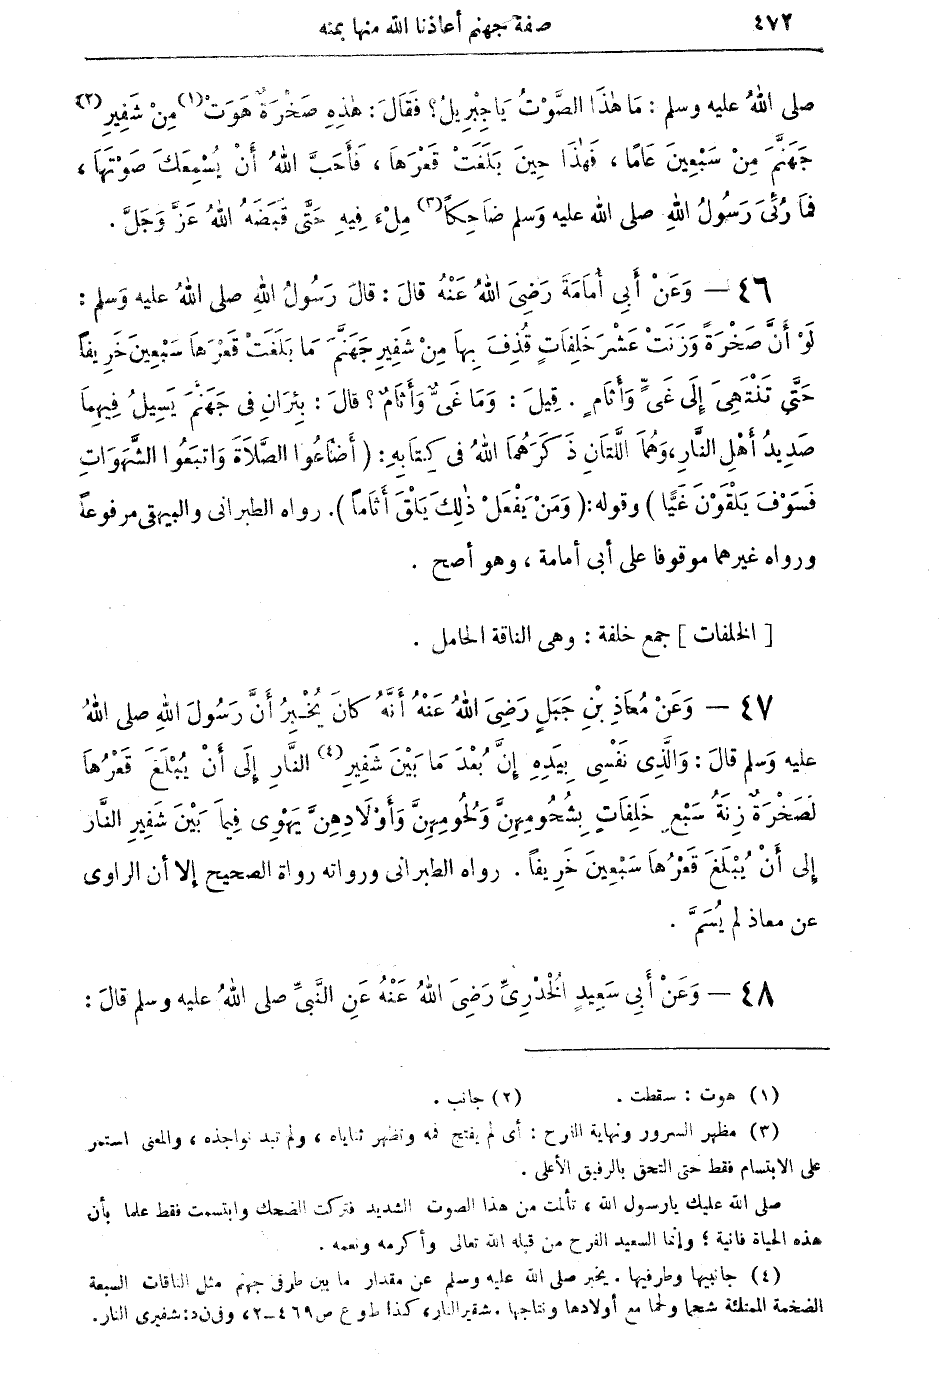 ٤٧٢ صفة جهنم أعاذنا الله منها بمنه
صلى اللهُ عليه وسلم : مَا هٰذَا الصَّوْتُ يَاجِبْرِيلُ؟ فَقَالَ: هٰذِهِ صَخْرَةٌ هَوَتْ(١)مِنْ شَفِيرِ(٢)
جَهَنَّمَ مِنْ سَبْعِينَ عَامًا ، فَهٰذَا حِينَ بَلَغَتْ قَعْرَهَا ، فَأَحَبَّ اللهُ أَنْ يُسْمِعَكَ صَوْتَهَا ،
فَمَا رُئِىَ رَسُولُ اللهِ صلى الله عليه وَسلم ضَاحِكًا(٣) مِلْءَ فِيهِ حَتَّى قَبَضَهُ اللهُ عَزَّ وَجَلَّ .
٤٦ – وَعَنْ أَبِى أُمَامَةَ رَضِىَ اللهُ عَنْهُ قالَ : قالَ رَسُولُ اللهِ صلى اللهُ عليه وَسلم :
لَوْ أَنَّ صَخْرَةً وَزَنَتْ عَشْرَ خَلِفَاتٍ قُذِفَ بِهَا مِنْ شَفِيرِ جَهَنَّمَ مَا بَلَغَتْ قَعْرَهَا سَبْعِينَ خَرِيفًا
حَتَّى تَنْتَهِىَ إِلَى غَىٍّ وَأَثَامٍ . قِيلَ : وَمَا غَىٌّ وَأَثَامٌ؟ قالَ : بِئْرَانِ فى جَهَنَّمَ يَسِيلُ فِيهِمَا
صَدِيدُ أَهْلِ النَّارِ،وَهُمَا اللَّتَانِ ذَكَرَهُمَا اللهُ فى كِتَابِهِ: ( أَضَاعُوا الصَّلَاةَ وَاتبَعُوا الشَّهَوَاتِ
فَسَوْفَ يَلْقَوْنَ غَيًّا ) وقوله:( وَمَنْ يَفْعَلْ ذٰلِكَ يَلْقَ أَثَامًا ). رواه الطبرانى والبيهقى مرفوعاً
ورواه غيرهما موقوفا على أبى أمامة ، وهو أصح .
[ الخلفات ] جمع خلفة : وهى الناقة الحامل .
٤٧ – وَعَنْ مُعَاذِ بْنِ جَبَلٍ رَضِىَ اللهُ عَنْهُ أَنَّهُ كانَ يُخْبِرُ أَنَّ رَسُولَ اللهِ صلى اللهُ
عليه وَسلم قالَ : وَالَّذِى نَفْسِى بِيَدِهِ إِنَّ بُعْدَ مَا بَيْنَ شَفِيرِ(٤) النَّارِ إِلَى أَنْ يُبْلَغَ قَعْرُهَا
لَصَخْرَةٌ زِنَةُ سَبْعِ خَلِفَاتٍ بِشُحُومِهِنَّ وَلُحُومِهِنَّ وَأَوْلَادِهِنَّ يَهْوِى فِيمَا بَيْنَ شَفِيرِ النَّارِ
إِلى أَنْ يُبْلَغَ قَعْرُهَا سَبْعِينَ خَرِيفًا . رواه الطبرانى ورواته رواة الصحيح إلا أن الراوى
عن معاذ لم يُسَمَّ .
٤٨ – وَعَنْ أَبِى سَعِيدٍ الْخُدْرِىِّ رَضِىَ اللهُ عَنْهُ عَنِ النَّبِىِّ صلى اللهُ عليه وسلم قالَ :
(١) هوت : سقطت . (٢) جانب .
(٣) مظهر السرور ونهاية الفرح : أى لم يفتح فمه وتظهر ثناياه ، ولم تبد نواجذه ، والمعنى استمر
على الابتسام فقط حتى التحق بالرفيق الأعلى .
صلى الله عليك يارسول الله ، تألمت من هذا الصوت الشديد فتركت الضحك وابتسمت فقط علما بأن
هذه الحياة فانية ؛ وإنما السعيد الفرح من قبله الله تعالى وأكرمه ونعمه .
(٤) جانبيها وطرفيها . يخبر صلى الله عليه وسلم عن مقدار ما بين طرفى جهنم مثل الناقات السبعة
الضخمة الممتلئة شحما ولحما مع أولادها ونتاجها .شفير النار، كذا ط و ع ص ٤٦٩–٢، وفى ن د: شفيرى النار.